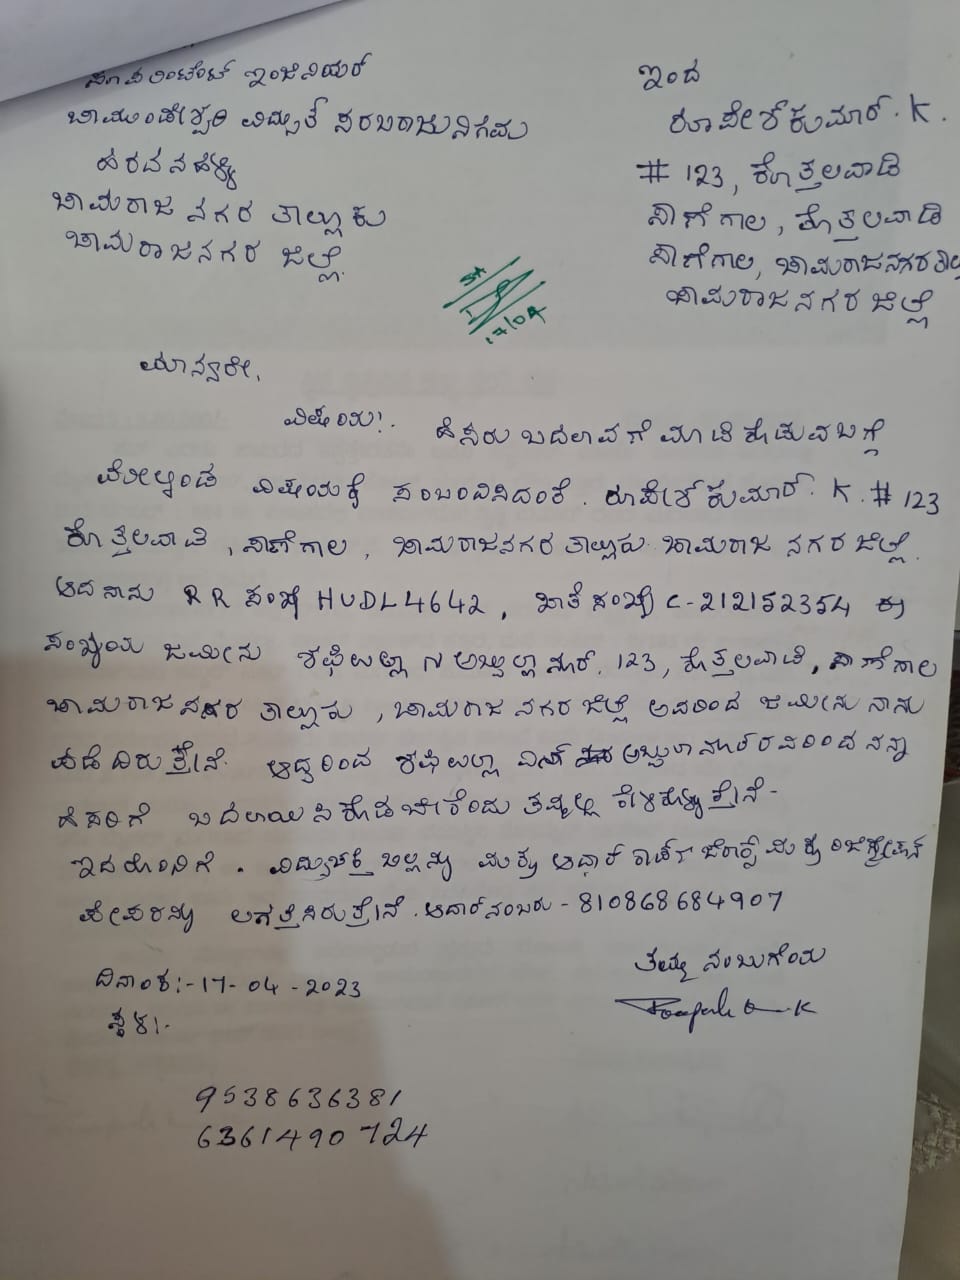 ಸೂಪರಿಂಟೆಂಟ್ ಇಂಜಿನಿಯರ್
ಚಾಮುಂಡೇಶ್ವರಿ ವಿದ್ಯುತ್ ಸರಬರಾಜುನಿಗಮ
ಹರವನಹಳ್ಳಿ
ಚಾಮರಾಜ ನಗರ ತಾಲ್ಲೂಕು
ಚಾಮರಾಜನಗರ ಜಿಲ್ಲೆ.
ಇಂದ
ರೂಪೇಶ್ ಕುಮಾರ್. K.
# 123, ಕೊತ್ತಲವಾಡಿ
ಸಾಣೆಗಾಲ, ಕೊತ್ತಲವಾಡಿ
ಸಾಣೆಗಾಲ, ಚಾಮರಾಜನಗರ
ಚಾಮರಾಜನಗರ ಜಿಲ್ಲೆ
17/04
ಮಾನ್ಯರೇ,
ವಿಷಯ:. ಹೆಸರು ಬದಲಾವಣೆ ಮಾಡಿಕೊಡುವ ಬಗ್ಗೆ
ಮೇಲ್ಕಂಡ ವಿಷಯಕ್ಕೆ ಸಂಬಂದಿಸಿದಂತೆ. ರೂಪೇಶ್ ಕುಮಾರ್. K. # 123
ಕೊತ್ತಲವಾಡಿ, ಸಾಣೆಗಾಲ, ಚಾಮರಾಜನಗರ ತಾಲ್ಲೂಕು ಚಾಮರಾಜ ನಗರ ಜಿಲ್ಲೆ.
ಆದ ನಾನು RR ಸಂಖ್ಯೆ HUDL4642, ಖಾತೆ ಸಂಖ್ಯೆ C-212152354 ಈ
ಸಂಖ್ಯೆಯ ಜಮೀನು ಶಫಿಉಲ್ಲಾ 123, ಕೊತ್ತಲವಾಡಿ, ಸಾಣೆಗಾಲ
ಚಾಮರಾಜನಗರ ತಾಲ್ಲೂಕು, ಚಾಮರಾಜ ನಗರ ಜಿಲ್ಲೆ ಅವರಿಂದ ಜಮೀನು ನಾನು
ಪಡೆದಿರುತ್ತೇನೆ. ಆದ್ದರಿಂದ ಶಫಿಉಲ್ಲಾ ನನ್ನಾ
ಹೆಸರಿಗೆ ಬದಲಾಯಿಸಿಕೊಡಬೇಕೆಂದು ತಮ್ಮಲ್ಲಿ ಕೇಳಿಕೊಳ್ಳುತ್ತೇನೆ-
ಇದರೊಂದಿಗೆ. ವಿದ್ಯುಚಕ್ತಿ ಬಿಲ್ಲನ್ನು ಮತ್ತು ಆಧಾರ್ ಕಾರ್ಡ್ ಜೆರಾಕ್ಸ್ ಮತ್ತು ರಿಜಿಸ್ಟ್ರೇಷನ್
ಪೇಪರನ್ನು ಲಗತ್ತಿಸಿರುತ್ತೇನೆ. ಆದಾರ್ ನಂಬರು - 810868684907
ತಮ್ಮ ನಂಬುಗೆಯ
ದಿನಾಂಕ:-17-04-2023
ಸ್ಥಳ:-
9538636381
6361490724